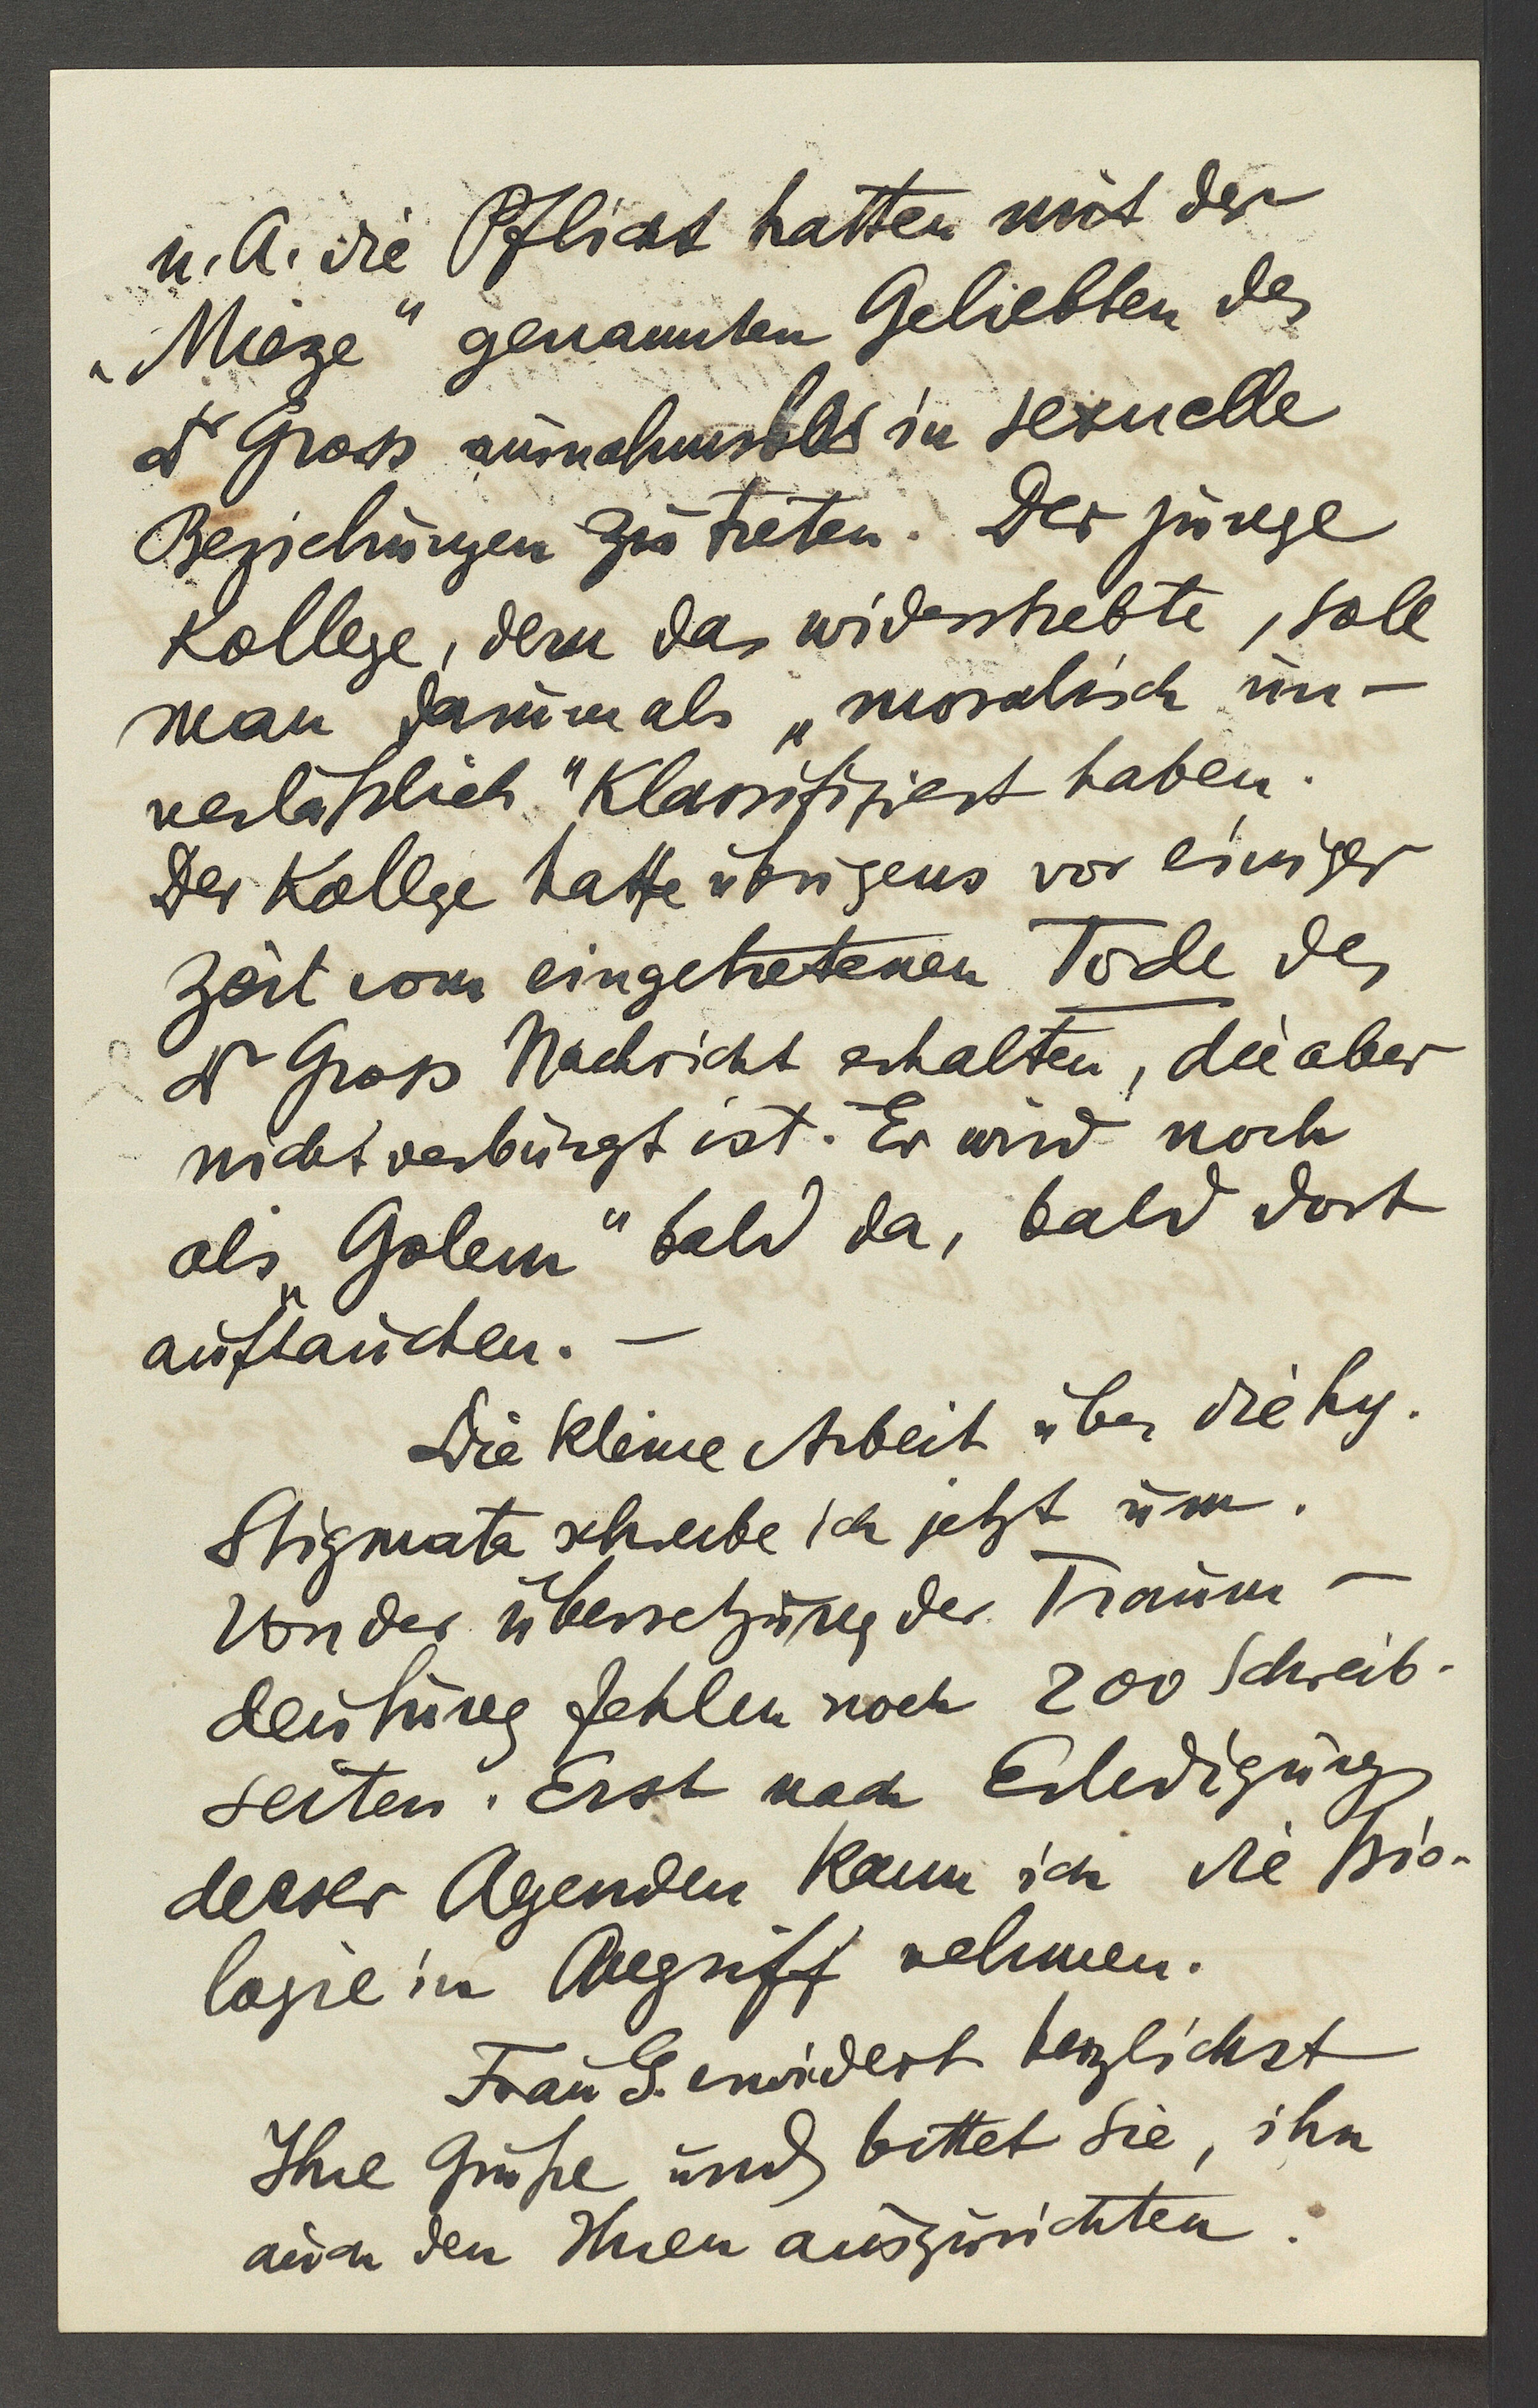 u. A. die Pflicht hatten mit der
„Mieze“ genannten Geliebten des
Dr Gross ausnahmslos in sexuelle
Beziehungen zu treten. Der junge
Kollege, dem das widerstrebte, soll
man darum als „moralisch un-
verläßlich“ klassifiziert haben.
Der Kollege hatte übrigens vor einiger
Zeit vom eingetretenen Tode des
Dr Gross Nachricht erhalten, die aber
nicht verbürgt ist. Er wird noch
als „Golem“ bald da, bald dort
auftauchen. —
Die kleine Arbeit über die hy.
Stigmata schreibe ich jetzt um.
Von der Übersetzung der Traum-
deutung fehlen noch 200 Schreib-
seiten. Erst nach Erledigung
dieser Agenden kann ich die Bio-
logie in Angriff nehmen.
Frau G. erwidert herzlichst
Ihre Grüße und bittet Sie, ihn
auch den Ihren auszurichten.